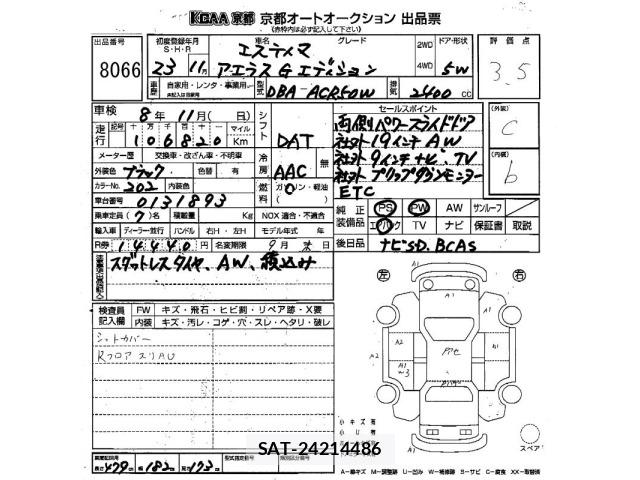 KCAA 京都 京都オートオークション 出品票
(赤枠内は必ず記入して下さい)
出品番号
8066
初度登録年月
S・H・R
23 11月
車名
エスティマ
グレード
アエラス G エディション
2WD
4WD
ドア・形状
5W
評価点
3.5
車歴
自家用・レンタ・事業用
型式
DBA-ACR50W
排気
2400 cc
車検
8年 11月( 日)
シフト
DAT
セールスポイント
両側パワースライドドア
社外19インチ AW
社外9インチナビ、TV
社外フリップダウンモニター
ETC
(外装)
C
(内装)
b
走行
記号 十 万 千 百 十 一 マイル
106820 Km
メーター歴 交換車・改ざん車・不明車
冷房
AAC
無
外装色 ブラック 色替 有
カラーNo. 202 内装色
燃料
ガソリン・軽油
車台番号 0131893
乗車定員 (7)名 積載量 Kg NOX 適合・不適合
輸入車 ディーラー 並行 ハンドル 右H・左H モデル年式 年
R券 14440 円 名変期限 9月 末日
純正装備品
PS PW AW サンルーフ
エアバッグ TV ナビ 保証書 取説
後日品 ナビSD、BCAS
スタットレスタイヤ、AW、積込み
検査員記入欄
FW キズ・飛石・ヒビ割・リペア跡・X要
内装 キズ・汚レ・コゲ・穴・スレ・ヘタリ・破レ
シートカバー
RフロアスリAU
左
右
A1
A1
A1
A2
A2
A1
W3
A1
小キズ有
小U有
スペア
長さ479 幅182 高さ173
型式指定番号
類別区分番号
SAT-24214486
A-線キズ M-調整跡 U-凹み W-補修跡 S-サビ C-腐食 XX-取替済